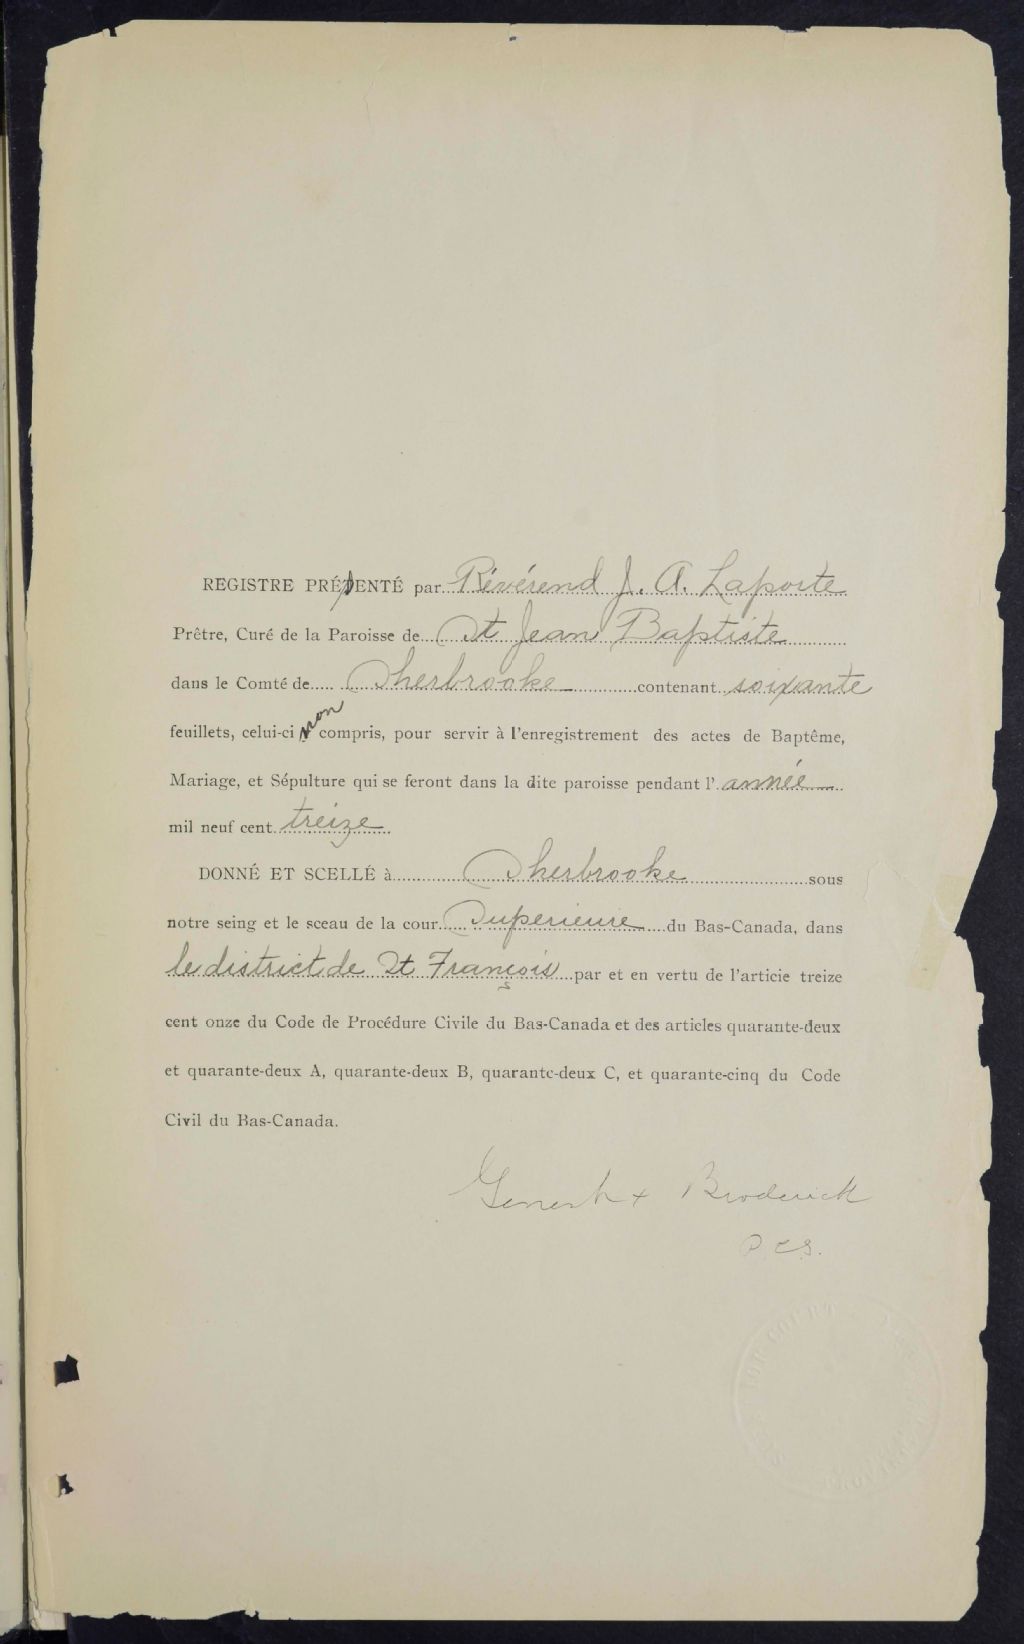 REGISTRE PRÉSENTÉ par Révérend J. A. Laporte
Prêtre, Curé de la Paroisse de St Jean Baptiste
dans le Comté de Sherbrooke contenant soixante
feuillets, celui-ci non compris, pour servir à l'enregistrement des actes de Baptême,
Mariage, et Sépulture qui se feront dans la dite paroisse pendant l'année
mil neuf cent treize
DONNÉ ET SCELLÉ à Sherbrooke sous
notre seing et le sceau de la cour Superieure du Bas-Canada, dans
le district de St François par et en vertu de l'articie treize
cent onze du Code de Procédure Civile du Bas-Canada et des articles quarante-deux
et quarante-deux A, quarante-deux B, quarante-deux C, et quarante-cinq du Code
Civil du Bas-Canada.
Genest & Broderick
P.C.S.
SUPERIOR COURT